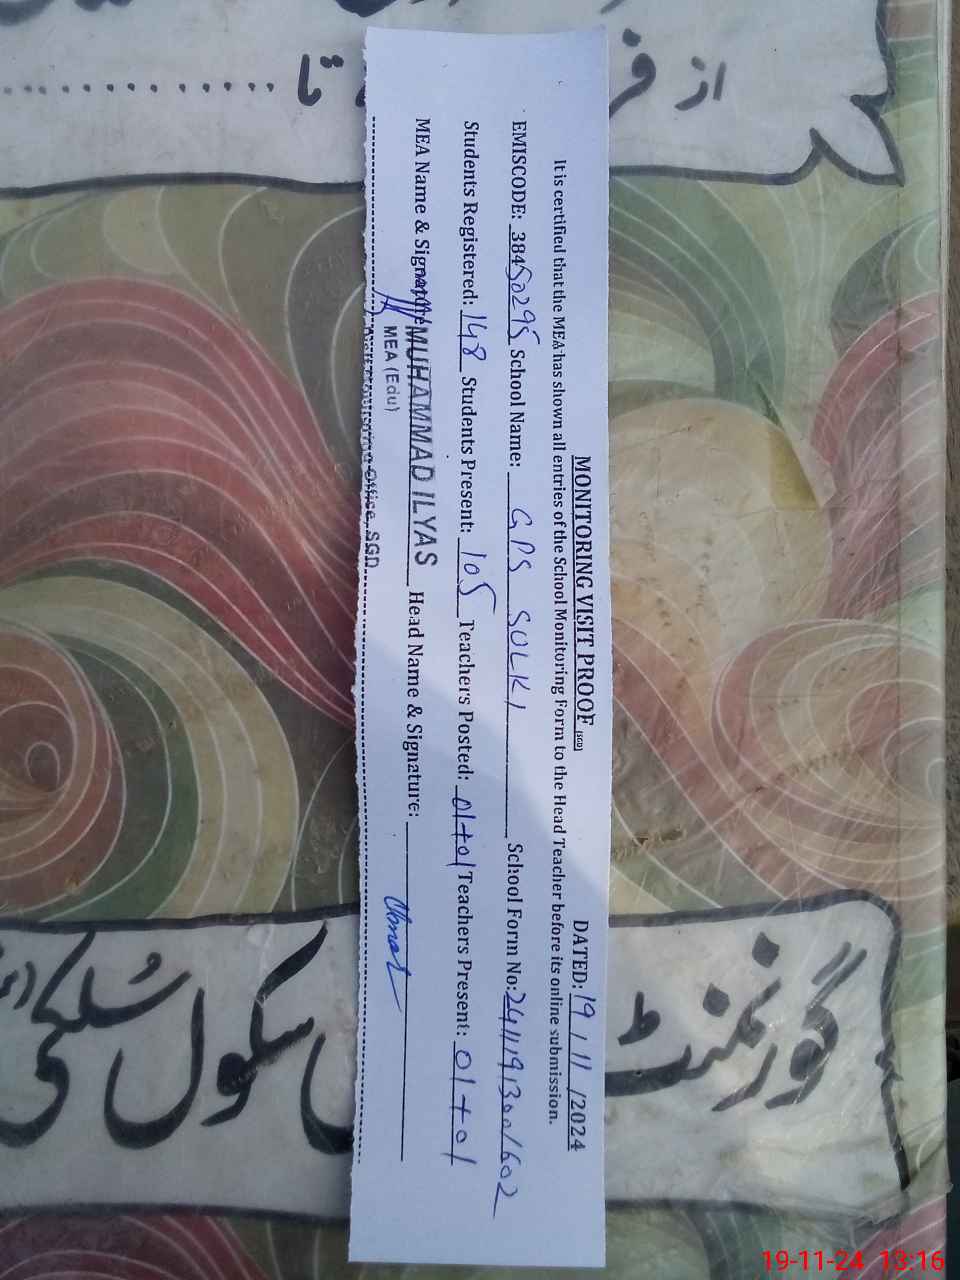 MONITORING VISIT PROOF (SGD) DATED: 19/11/2024
It is certified that the MEA has shown all entries of the School Monitoring Form to the Head Teacher before its online submission.
EMISCODE: 38450295 School Name: GPS SULKI School Form No: 24111913001602
Students Registered: 148 Students Present: 105 Teachers Posted: 01+01 Teachers Present: 01+01
MEA Name & Signature MUHAMMAD ILYAS Head Name & Signature:
MEA (Edu)
Office, SGD
گورنمنٹ سکول سُلکی
19-11-24 13:16